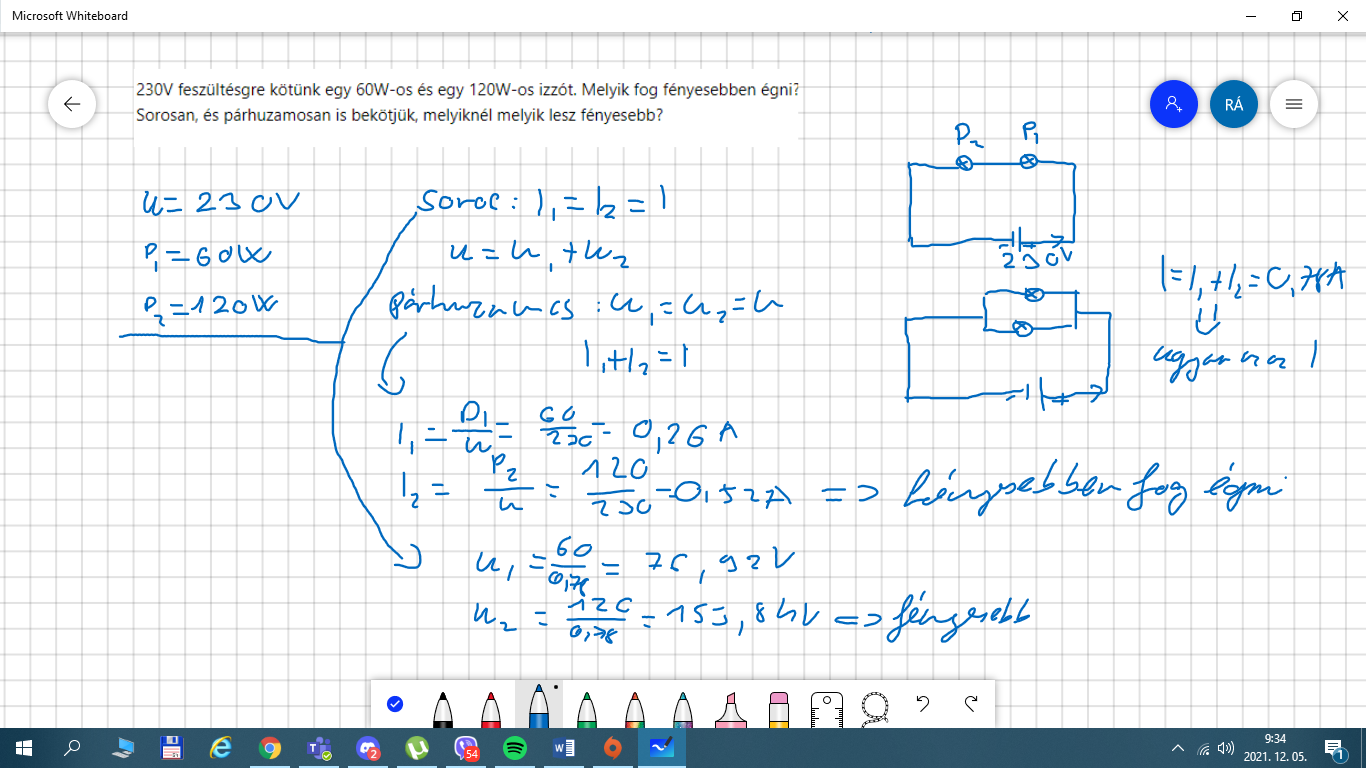 Microsoft Whiteboard
230V feszültésgre kötünk egy 60W-os és egy 120W-os izzót. Melyik fog fényesebben égni?
Sorosan, és párhuzamosan is bekötjük, melyiknél melyik lesz fényesebb?
RÁ
U = 230V
P₁ = 60W
P₂ = 120W
Soros: I₁ = I₂ = I
U = U₁ + U₂
Párhuzamos: U₁ = U₂ = U
I₁ + I₂ = I
I₁ = P₁/U = 60/230 = 0,26A
I₂ = P₂/U = 120/230 = 0,52A => fényesebben fog égni
U₁ = 60/0,78 = 76,92V
U₂ = 120/0,78 = 153,84V => fényesebb
P₂ P₁
- +
230V
I = I₁ + I₂ = 0,78A
ugyanaz az I
- +
54
2
W
9:34
2021. 12. 05.
1